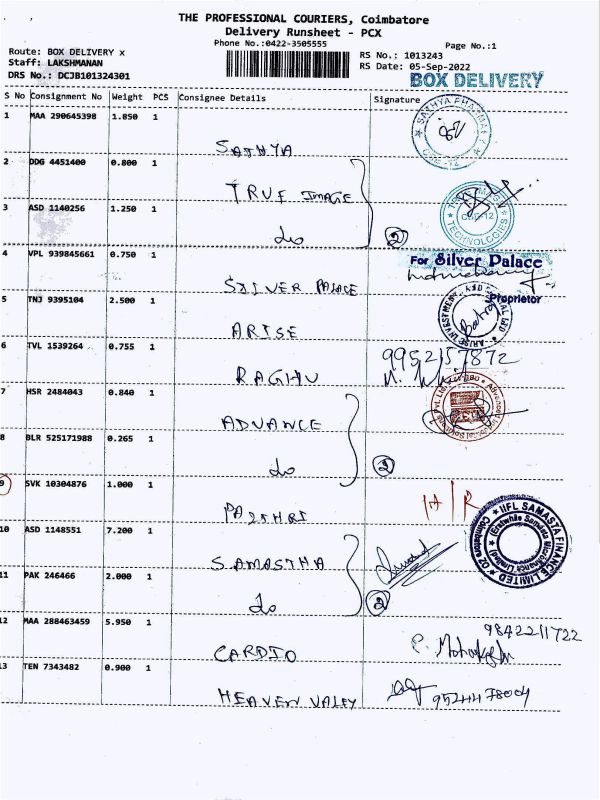 THE PROFESSIONAL COURIERS, Coimbatore
Delivery Runsheet - PCX
Phone No.:0422-3505555
Page No.:1
Route: BOX DELIVERY x
Staff: LAKSHMANAN
DRS No.: DCJB101324301
RS No.: 1013243
RS Date: 05-Sep-2022
BOX DELIVERY
S No Consignment No Weight PCS Consignee Details Signature
1 MAA 290645398 1.850 1 SATHYA
2 DDG 4451400 0.800 1 TRUE IMAGE
3 ASD 1140256 1.250 1 do 2
TECHNOLOGIES
4 VPL 939845661 0.750 1 SILVER PALACE
For Silver Palace
Proprietor
5 TNJ 9395104 2.500 1 ARISE
6 TVL 1539264 0.755 1 RAGHU 9952157872
7 HSR 2484043 0.840 1 ADVANCE
8 BLR 525171988 0.265 1 do 2
9 SVK 10304876 1.000 1
IIFL SAMASTA FINANCE LIMITED
10 ASD 1148551 7.200 1 SAMASTHA
11 PAK 246466 2.000 1 do 2
12 MAA 288463459 5.950 1 CARDIO 9842211722
13 TEN 7343482 0.900 1 HEAVEN VALEY 9524478004